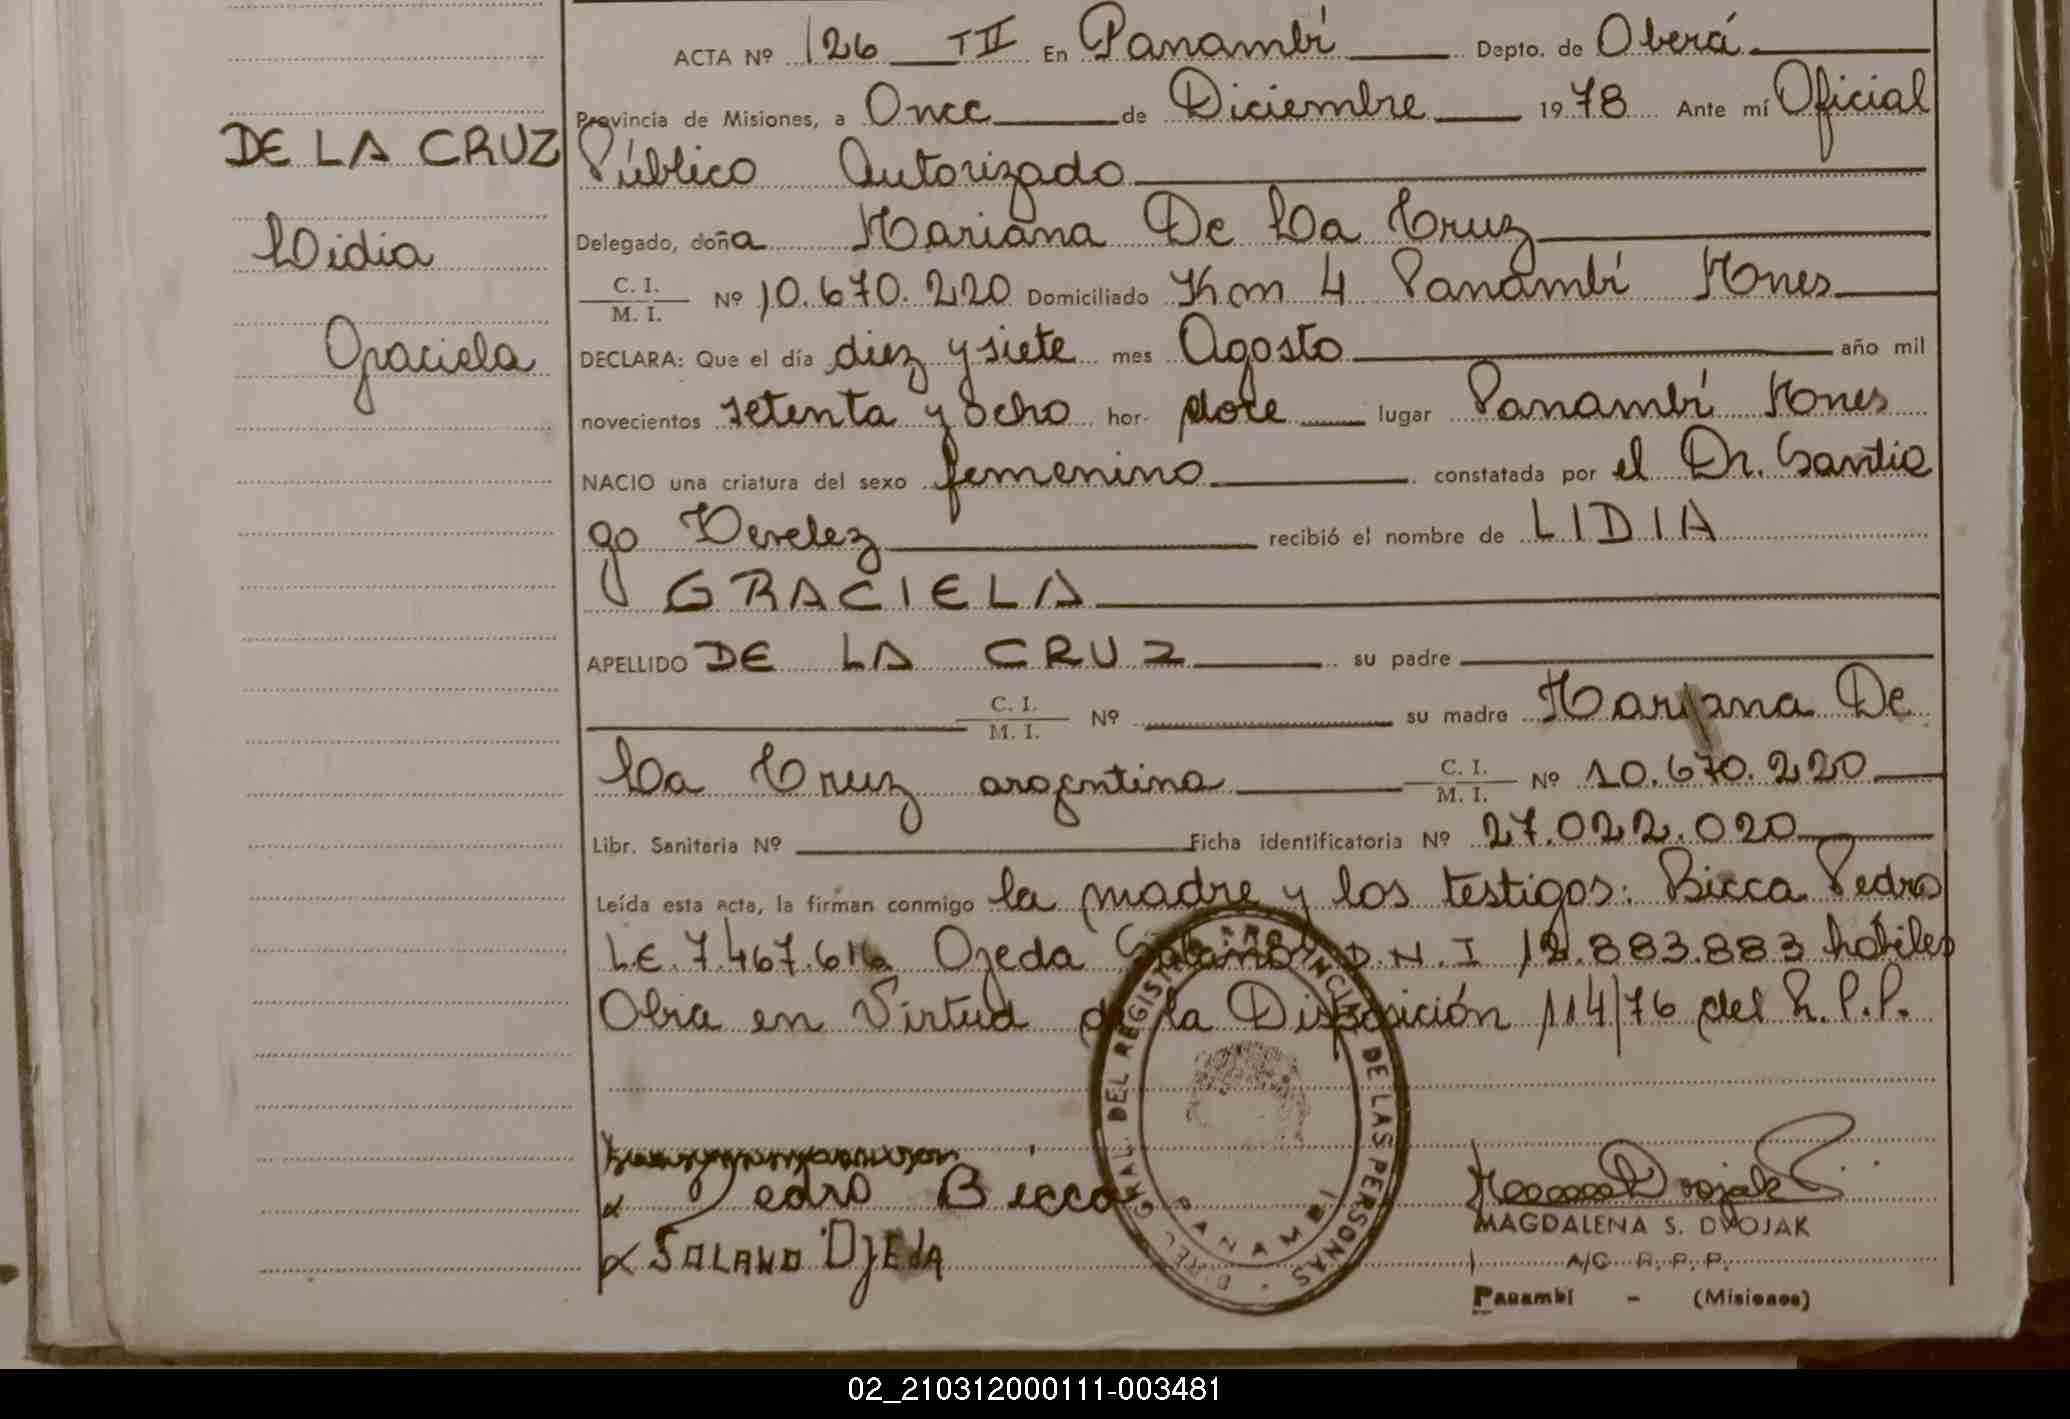 ACTA Nº 126 TII En Panambí Depto. de Oberá
Provincia de Misiones, a Once de Diciembre 1978 Ante mí Oficial
DE LA CRUZ
Público Autorizado
Delegado, doña Mariana De La Cruz
Lidia
C. I. / M. I. Nº 10.670.220 Domiciliado Km 4 Panambí Mnes
Graciela
DECLARA: Que el día diez y siete mes Agosto año mil
novecientos setenta y ocho hor- doce lugar Panambí Mnes
NACIO una criatura del sexo femenino constatada por el Dr. Santia
go Verelez recibió el nombre de LIDIA
GRACIELA
APELLIDO DE LA CRUZ su padre
C. I. / M. I. Nº su madre Mariana De
La Cruz argentina C. I. / M. I. Nº 10.670.220
Libr. Sanitaria Nº Ficha identificatoria Nº 27.022.020
Leída esta acta, la firman conmigo la madre y los testigos: Bicca Pedro
L.E. 7.467.616 Ojeda Solano D.N.I 12.883.883 hábiles
Obra en Virtud de la Disposición 114/76 del R.P.P.
Pedro Bicca
SOLANO OJEDA
DIREC. GRAL. DEL REGISTRO PROVINCIAL DE LAS PERSONAS
PANAMBI
MAGDALENA S. DVOJAK
A/C R.P.P.
Panambí - (Misiones)
02_210312000111-003481